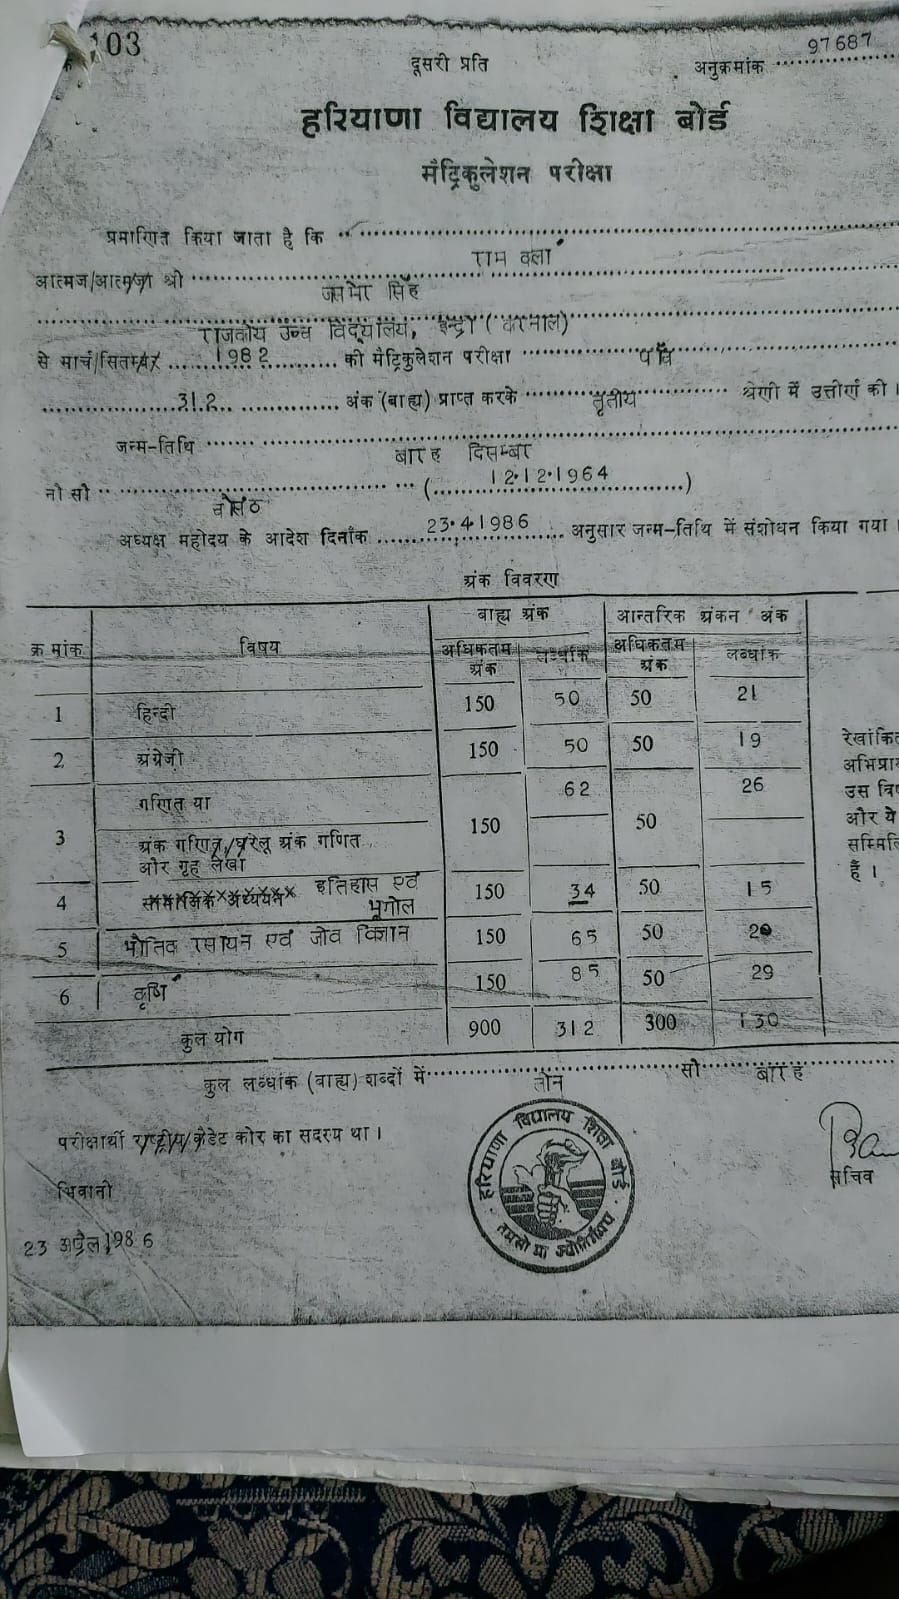 103
दूसरी प्रति
अनुक्रमांक 97687
हरियाणा विद्यालय शिक्षा बोर्ड
मैट्रिकुलेशन परीक्षा
प्रमाणित किया जाता है कि
राम कला
आत्मज/आत्मजा श्री
जसमेर सिंह
राजकीय उच्च विद्यालय, इन्द्री (करनाल)
से मार्च/सितम्बर 1982 की मैट्रिकुलेशन परीक्षा पाँच
312 अंक (बाह्य) प्राप्त करके तृतीय श्रेणी में उत्तीर्ण की।
जन्म-तिथि बारह दिसम्बर
नौ सौ चौसठ (12.12.1964)
अध्यक्ष महोदय के आदेश दिनाँक 23.4.1986 अनुसार जन्म-तिथि में संशोधन किया गया।
अंक विवरण
क्रमांक विषय बाह्य अंक आन्तरिक अंकन अंक
अधिकतम अंक लब्धांक अधिकतम अंक लब्धांक
1 हिन्दी 150 50 50 21
2 अंग्रेजी 150 50 50 19
गणित या 62 26
3 150 50
अंक गणित/घरेलू अंक गणित
और गृह लेखा
4 सामाजिक अध्ययन इतिहास एवं भूगोल 150 34 50 15
5 भौतिक रसायन एवं जीव विज्ञान 150 65 50 20
6 कृषि 150 85 50 29
कुल योग 900 312 300 130
रेखांकित
अभिप्राय
उस
और ये
सम्मिलि
हैं।
कुल लब्धांक (बाह्य) शब्दों में तीन सौ बारह
परीक्षार्थी राष्ट्रीय कैडेट कोर का सदस्य था।
भिवानी
सचिव
23 अप्रैल 1986
हरियाणा विद्यालय शिक्षा बोर्ड
तमसो मा ज्योतिर्गमय